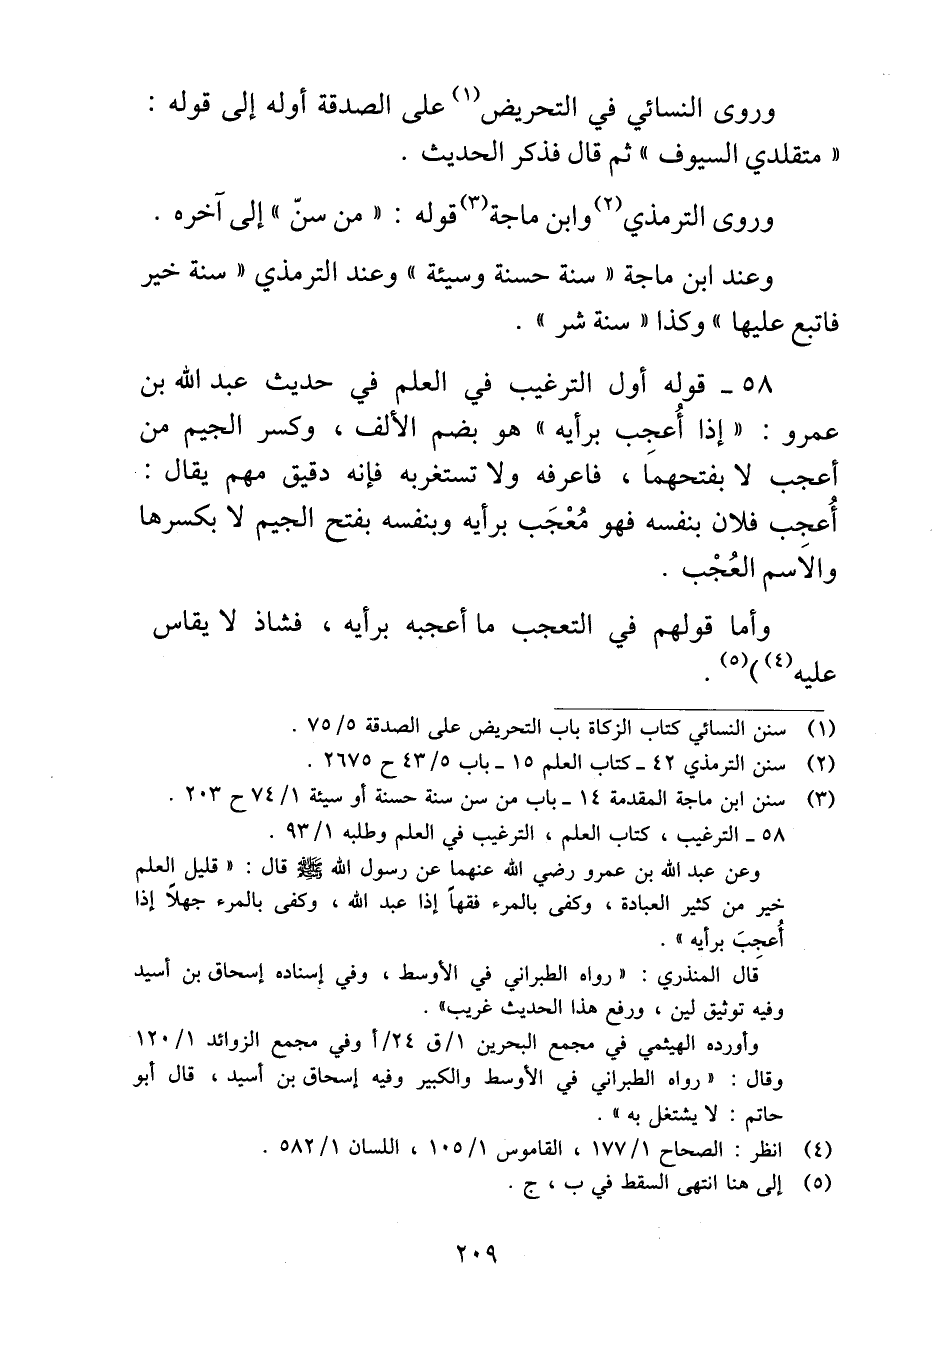 وروى النسائي في التحريض(١) على الصدقة أوله إلى قوله :
« متقلدي السيوف » ثم قال فذكر الحديث .
وروى الترمذي(٢) وابن ماجة(٣) قوله : « من سنّ » إلى آخره .
وعند ابن ماجة « سنة حسنة وسيئة » وعند الترمذي « سنة خير
فاتبع عليها » وكذا « سنة شر » .
٥٨ ـ قوله أول الترغيب في العلم في حديث عبد الله بن
عمرو : « إذا أُعجِب برأيه » هو بضم الألف ، وكسر الجيم من
أعجب لا بفتحهما ، فاعرفه ولا تستغربه فإنه دقيق مهم يقال :
أُعجِب فلان بنفسه فهو مُعْجَب برأيه وبنفسه بفتح الجيم لا بكسرها
والاَسم العُجْب .
وأما قولهم في التعجب ما أعجبه برأيه ، فشاذ لا يقاس
عليه(٤) )(٥) .
(١) سنن النسائي كتاب الزكاة باب التحريض على الصدقة ٧٥/٥ .
(٢) سنن الترمذي ٤٢ ـ كتاب العلم ١٥ ـ باب ٤٣/٥ ح ٢٦٧٥ .
(٣) سنن ابن ماجة المقدمة ١٤ ـ باب من سن سنة حسنة أو سيئة ٧٤/١ ح ٢٠٣ .
٥٨ ـ الترغيب ، كتاب العلم ، الترغيب في العلم وطلبه ٩٣/١ .
وعن عبد الله بن عمرو رضي الله عنهما عن رسول الله ﷺ قال : « قليل العلم
خير من كثير العبادة ، وكفى بالمرء فقهاً إذا عبد الله ، وكفى بالمرء جهلاً إذا
أُعجِبَ برأيه » .
قال المنذري : « رواه الطبراني في الأوسط ، وفي إسناده إسحاق بن أسيد
وفيه توثيق لين ، ورفع هذا الحديث غريب» .
وأورده الهيثمي في مجمع البحرين ١/ق ٢٤/أ وفي مجمع الزوائد ١٢٠/١
وقال : « رواه الطبراني في الأوسط والكبير وفيه إسحاق بن أسيد ، قال أبو
حاتم : لا يشتغل به » .
(٤) انظر : الصحاح ١٧٧/١ ، القاموس ١٠٥/١ ، اللسان ٥٨٢/١ .
(٥) إلى هنا انتهى السقط في ب ، ج .
٢٠٩